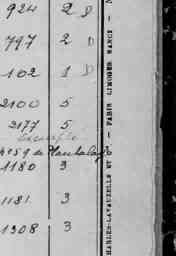 924 2 D
797 2 D
102 1 D
2100 5
2177 5
Exemple
4059 de Marbalay
1180 3
1181 3
1308 3
CHARLES-LAVAUZELLE ET — PARIS LIMOGES NANCY —